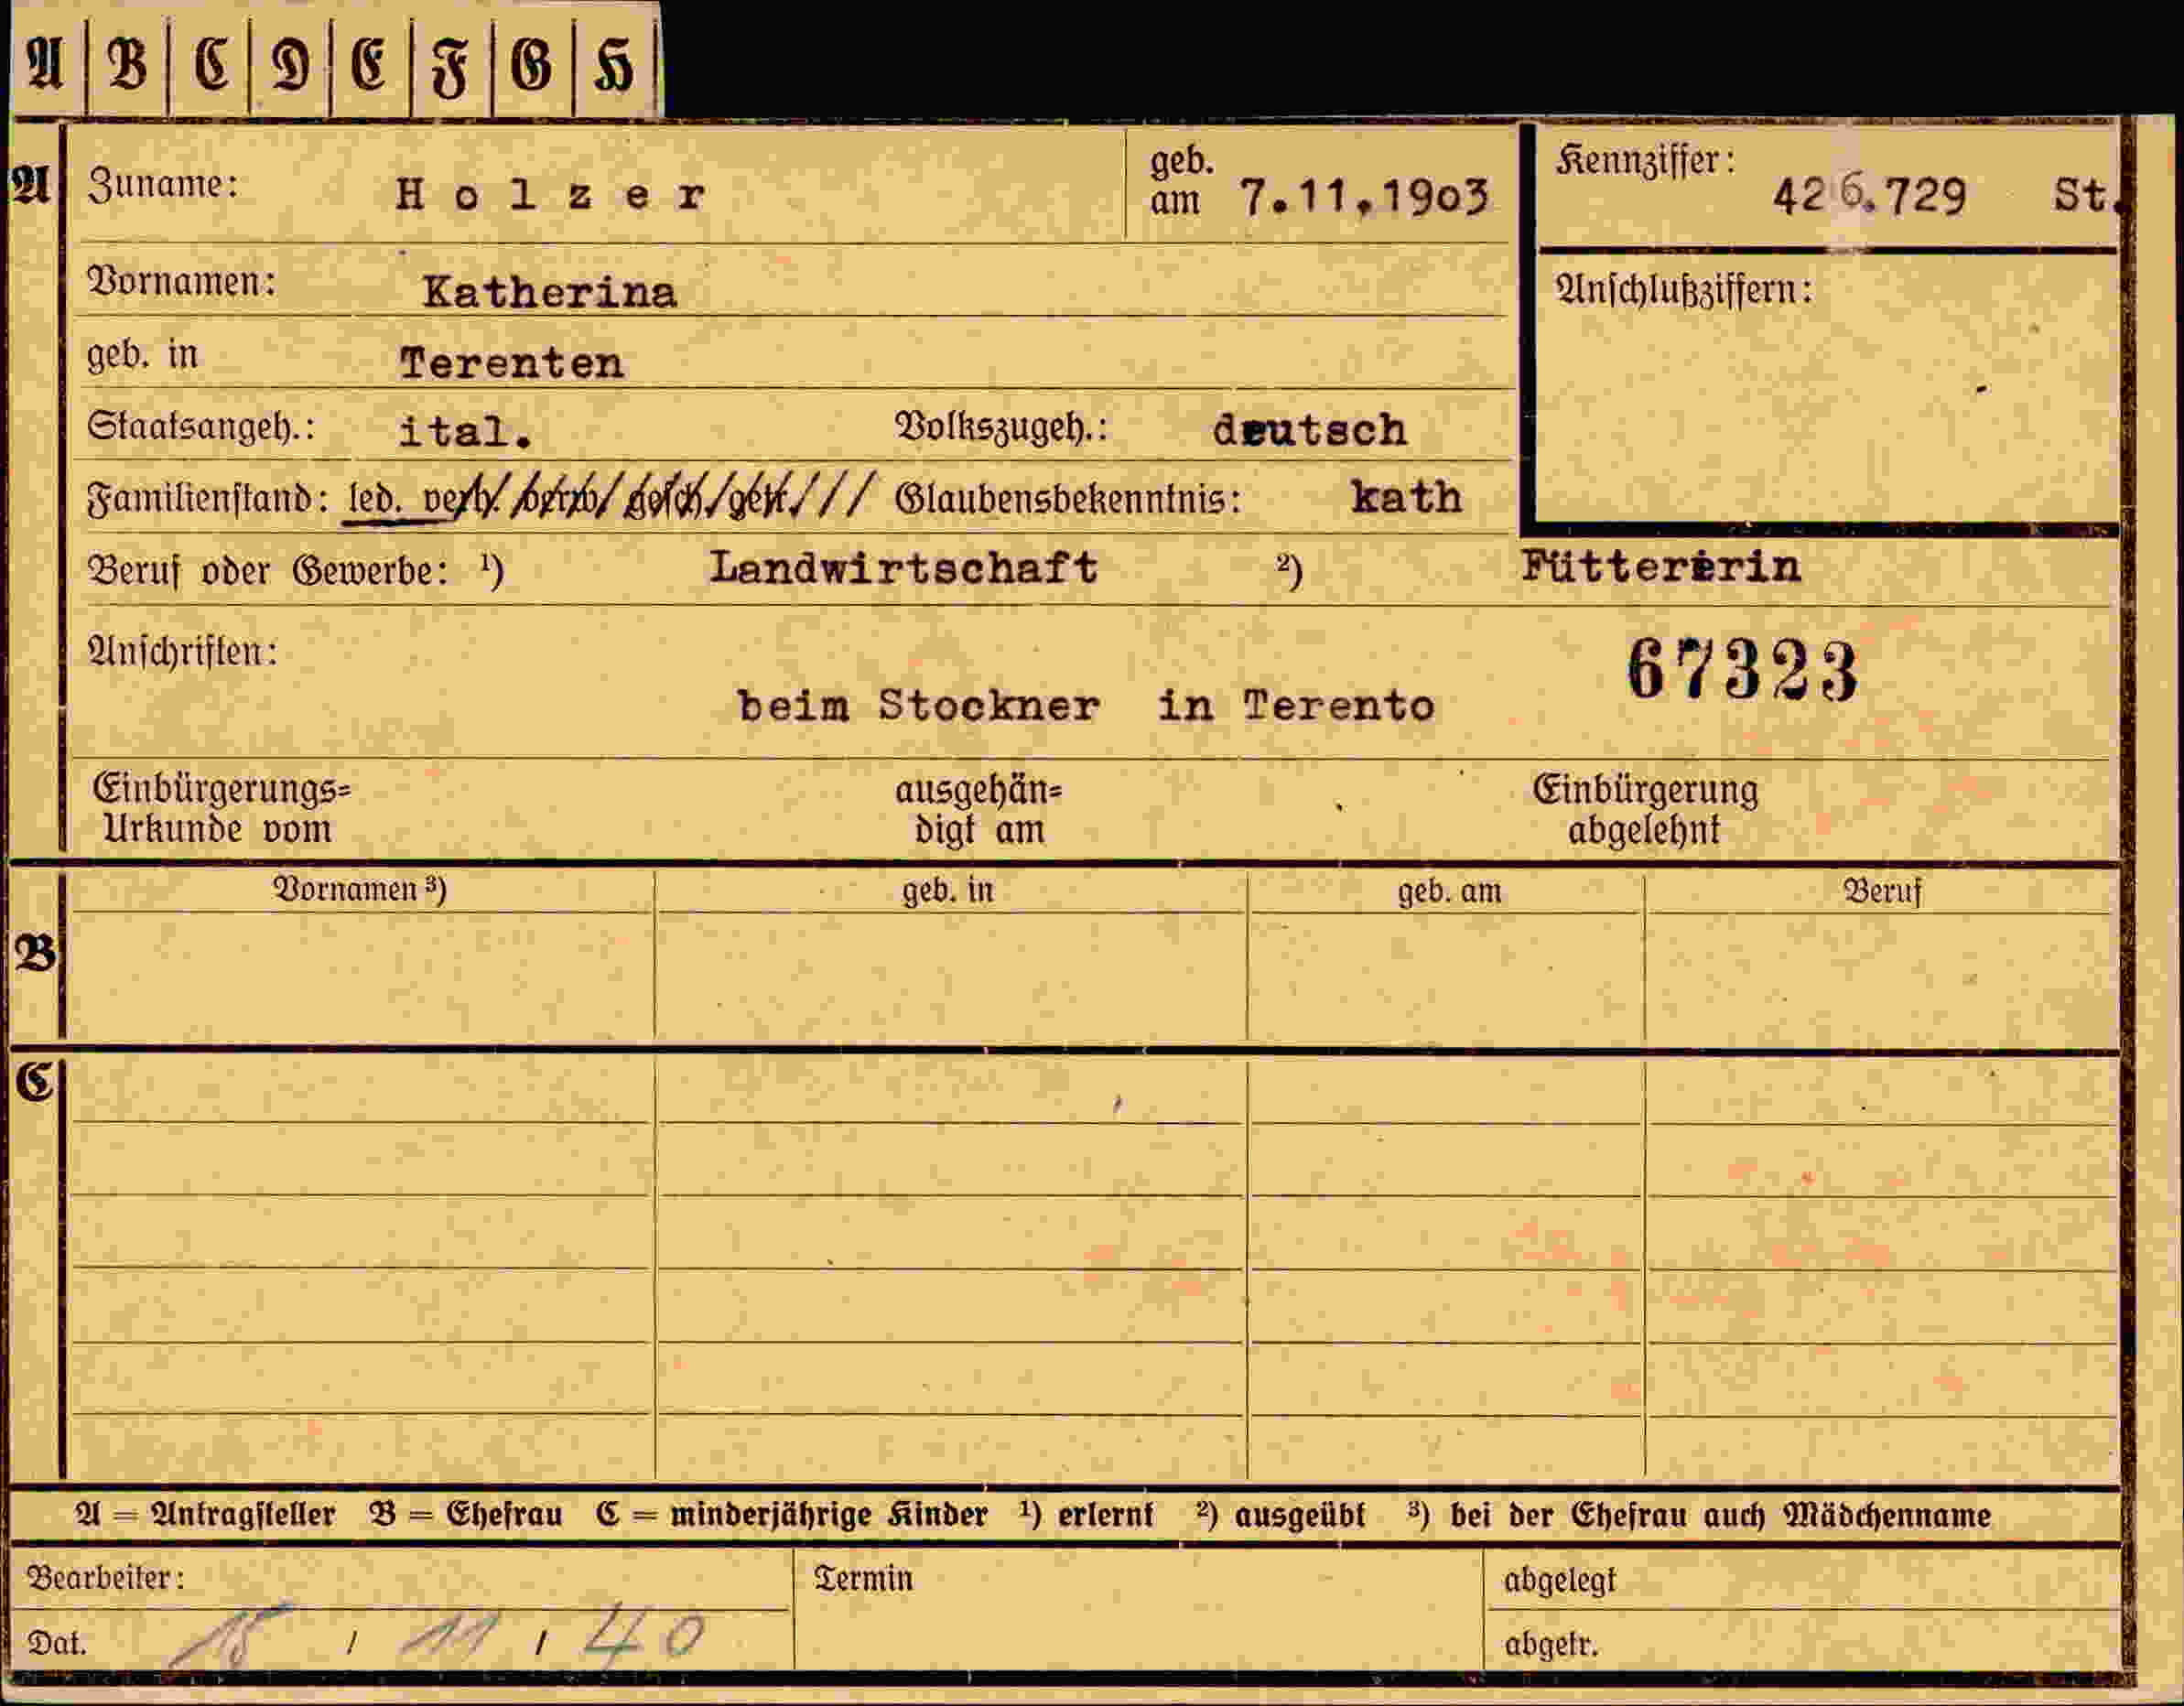 A B C D E F G H
A Zuname: Holzer geb. am 7.11.1903 Kennziffer: 426.729 St.
Vornamen: Katherina Anschlußziffern:
geb. in Terenten
Staatsangeh.: ital. Volkszugeh.: deutsch
Familienstand: led. verh. verw. gesch. getr. Glaubensbekenntnis: kath
Beruf oder Gewerbe: ¹) Landwirtschaft ²) Füttererin
Anschriften: 67323
beim Stockner in Terento
Einbürgerungs= ausgehän= Einbürgerung
Urkunde vom digt am abgelehnt
Vornamen ³) geb. in geb. am Beruf
B
C
A = Antragsteller B = Ehefrau C = minderjährige Kinder ¹) erlernt ²) ausgeübt ³) bei der Ehefrau auch Mädchenname
Bearbeiter: Termin abgelegt
Dat. 15 / 11 / 40 abgetr.